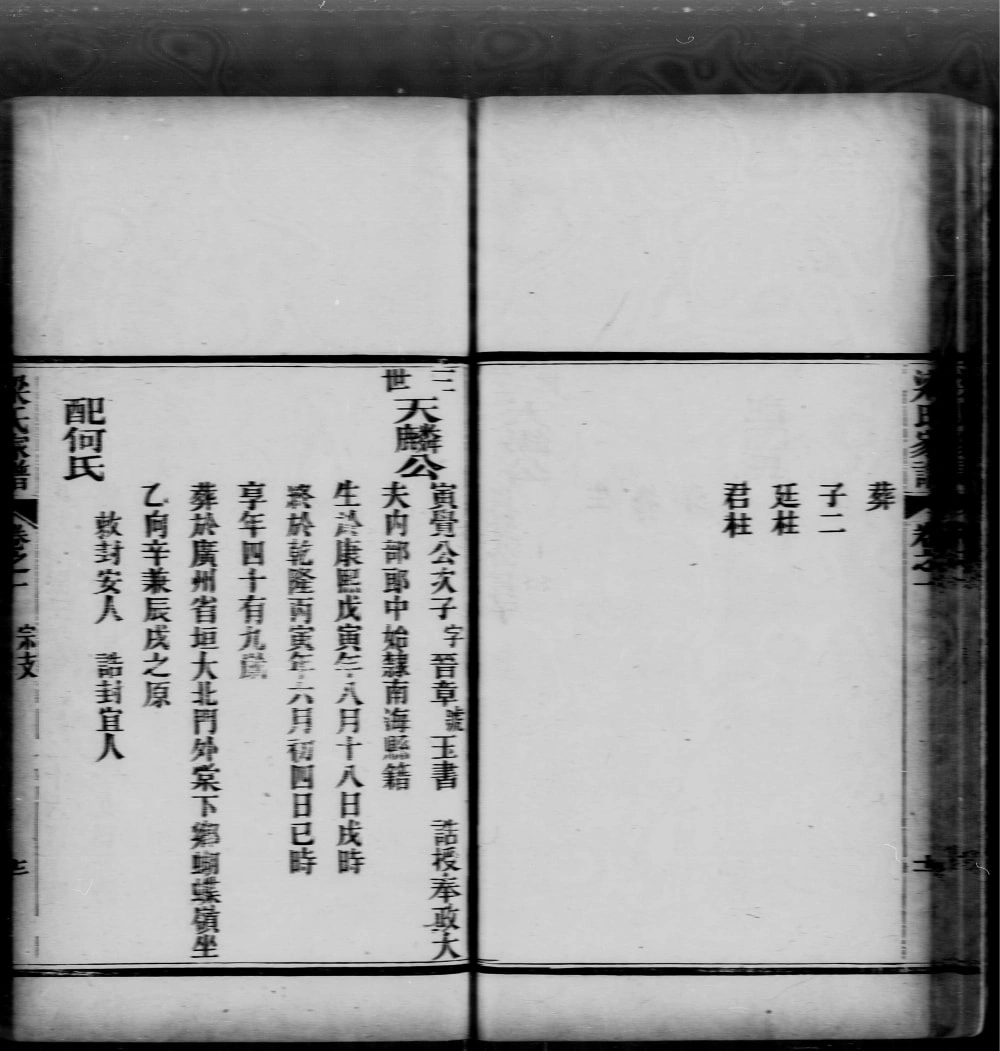 梁氏家譜 卷之一
葬
子二
廷柱
君柱
三世
天麟公
寅覺公次子字晉章號玉書 誥授奉政大
夫內部郎中始隸南海縣籍
生於康熙戊寅年八月十八日戌時
終於乾隆丙寅年六月初四日巳時
享年四十有九歲
葬於廣州省垣大北門外棠下鄉蝴蝶嶺坐
乙向辛兼辰戌之原
配何氏
敕封安人 誥封宜人
梁氏家譜 卷之一 宗支